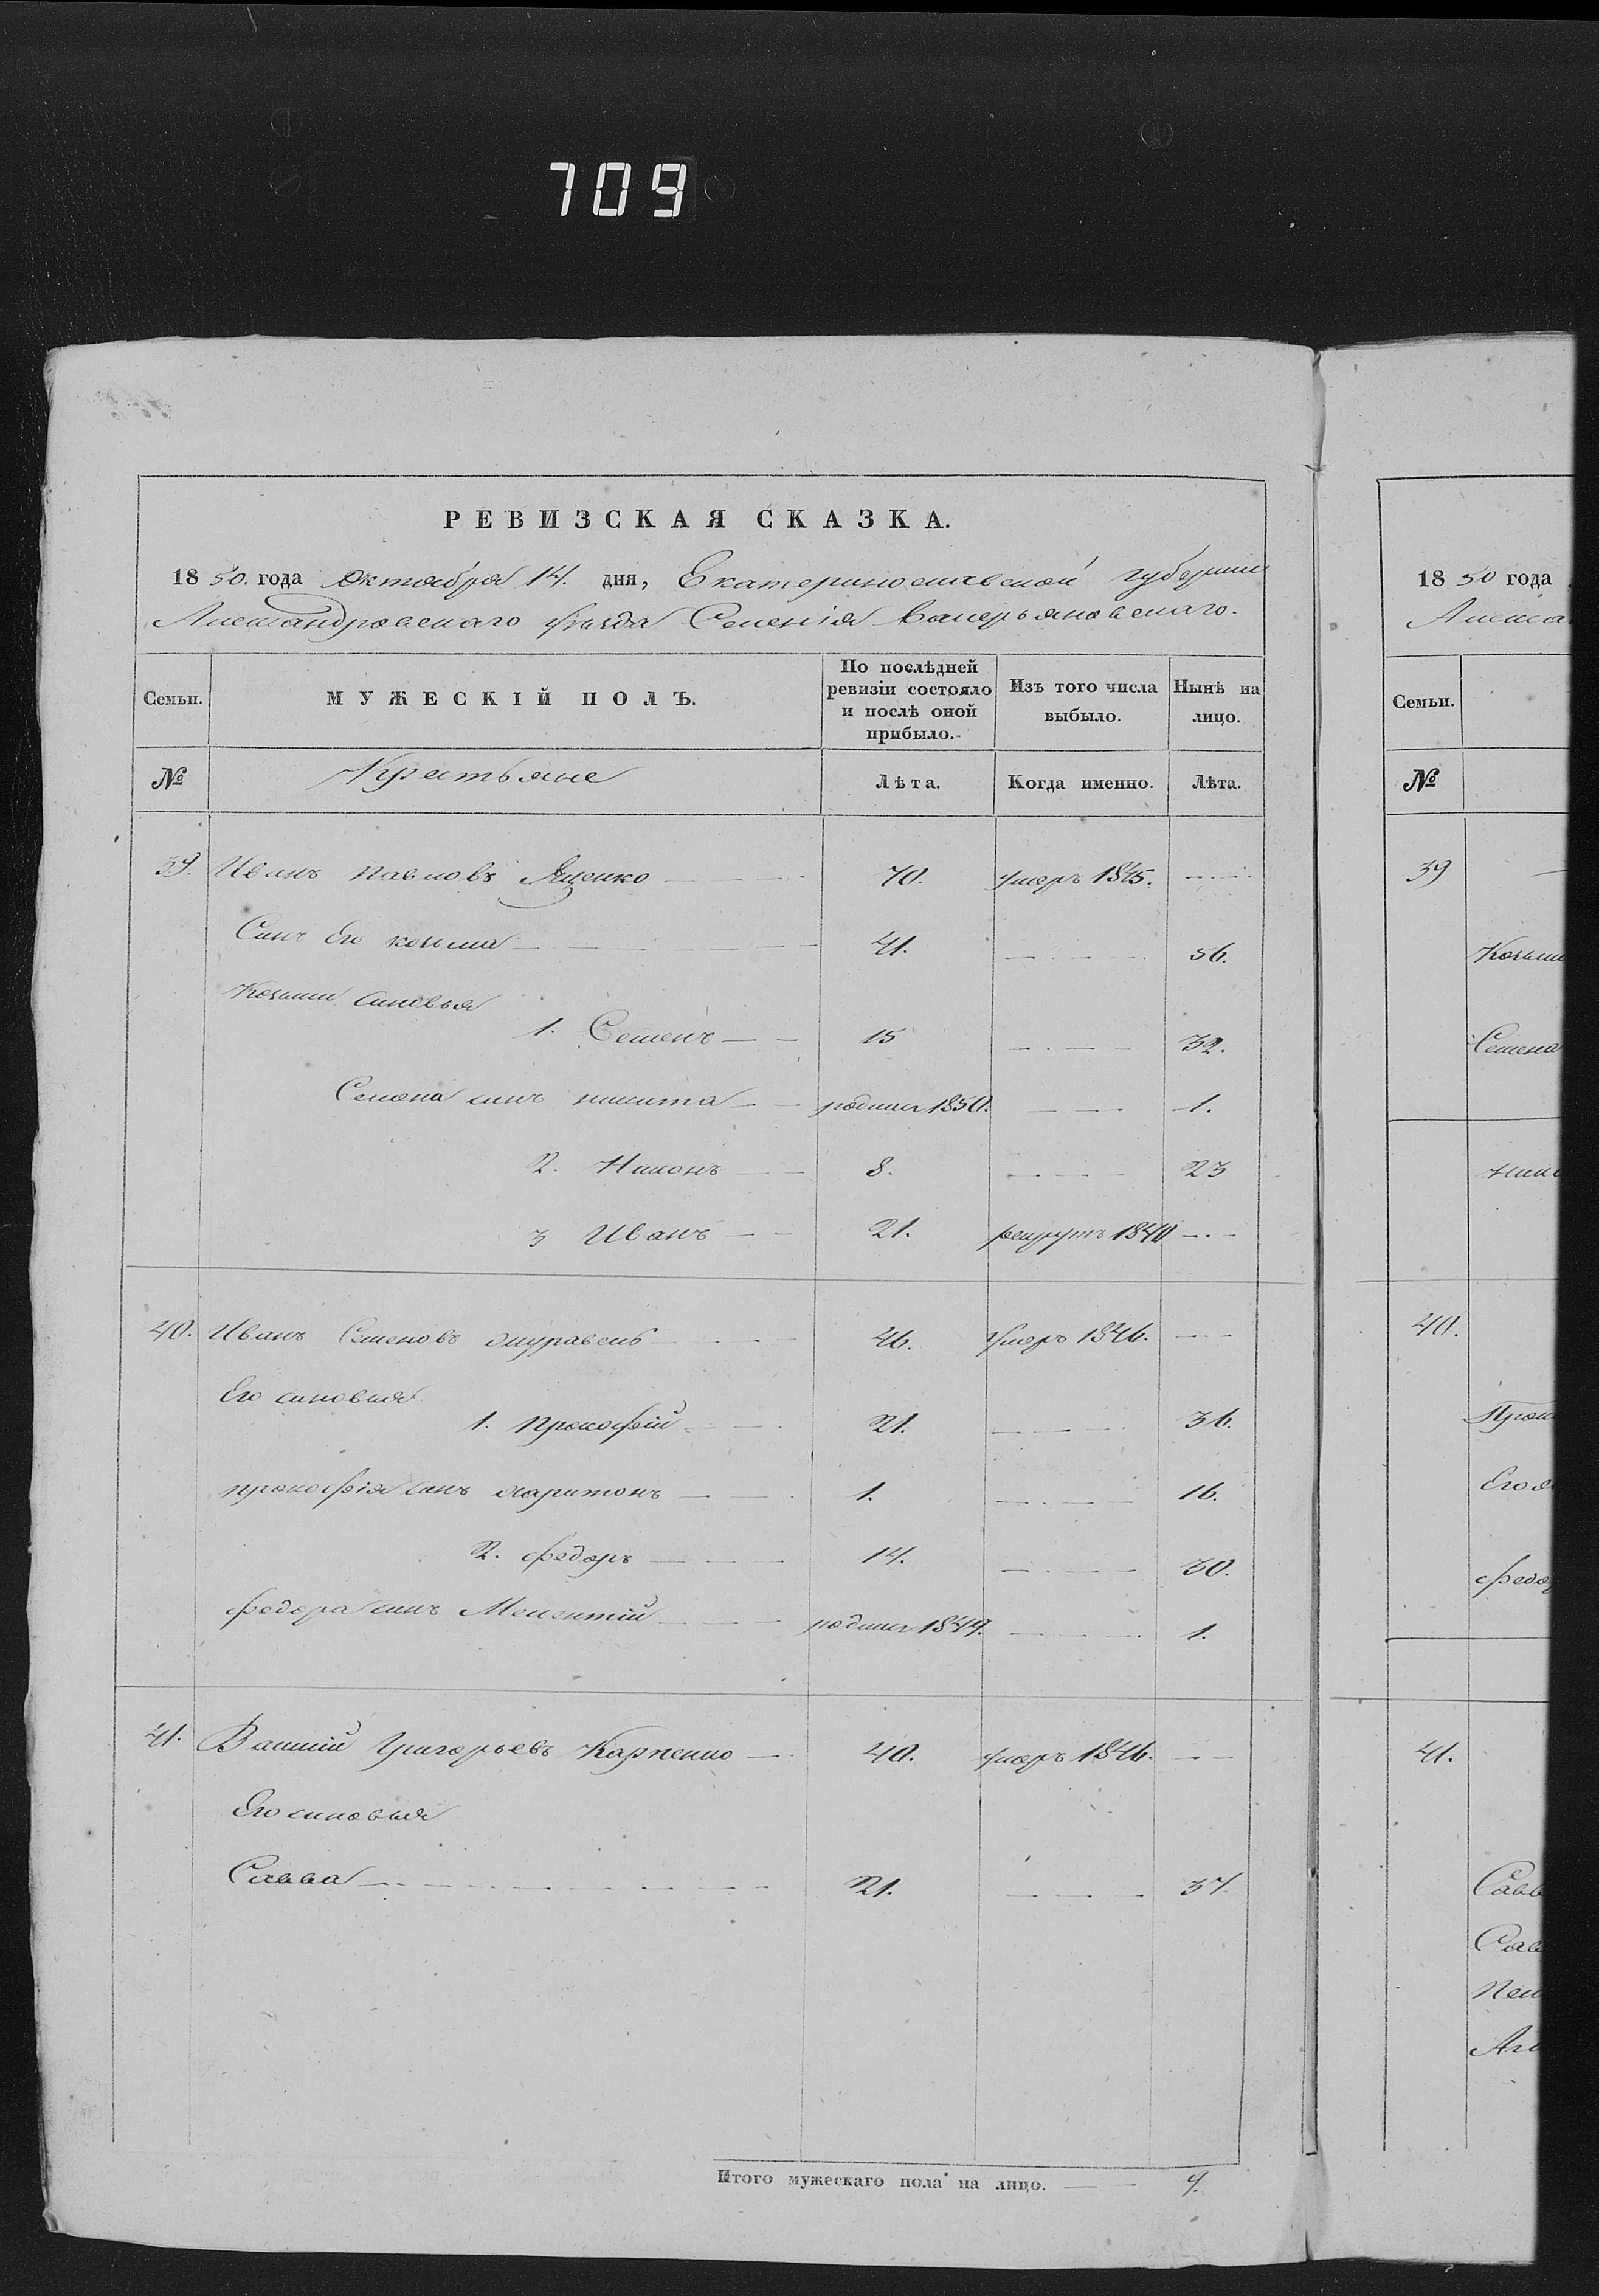 709
РЕВИЗСКАЯ СКАЗКА.
1850. года Октября 14. дня, Екатеринославской губернии
Александровскаго уѣзда Селенія Валерьяновскаго.
Семьи. МУЖЕСКІЙ ПОЛЪ. По послѣдней ревизіи состояло и послѣ оной прибыло. Изъ того числа выбыло. Нынѣ на лицо.
№ Крестьяне Лѣта. Когда именно. Лѣта.
39. Иванъ Павловъ Яценко 70. умеръ 1845.
Синъ Его козьма 41. 56.
Козьми синовья
1. Семенъ 15 32.
Семена синъ никита родился 1850. 1.
2. Никонъ 8. 23
3 Иванъ 21. рекрутъ 1840
40. Иванъ Семеновъ 46. Умеръ 1846.
Его синовья
1. Прокофій 21. 36.
прокофія синъ харитонъ 1. 16.
2. федоръ 14. 30.
федора синъ Мелентій родился 1849. 1.
41. Василій Григорьевъ Карпенко 40. умеръ 1846.
Его синовья
Савва 21. 37.
Итого мужескаго пола на лицо. 9.
1850 года
Алекса
Семьи.
№
39
Козьми
Семена
Нико
40.
Прок
Его
федо
41.
Савв
Сав
Пел